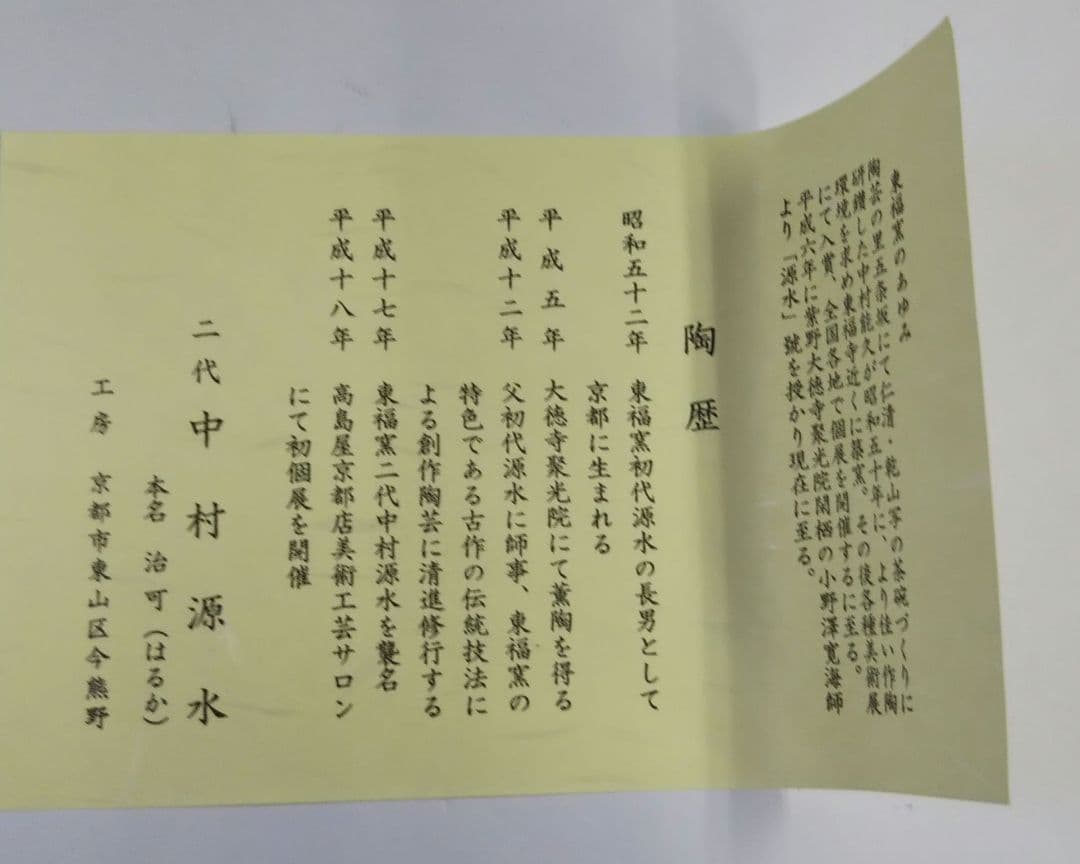 東福窯のあゆみ
陶芸の里五条坂にて仁清・乾山写の茶碗づくりに
研鑽した中村能久が昭和五十年に、より佳い作陶
環境を求め東福寺近くに築窯。その後各種美術展
にて入賞、全国各地で個展を開催するに至る。
平成六年に紫野大徳寺聚光院閑栖の小野澤寛海師
より「源水」號を授かり現在に至る。
陶歴
昭和五十二年 東福窯初代源水の長男として
京都に生まれる
平成五年 大徳寺聚光院にて薫陶を得る
平成十二年 父初代源水に師事、東福窯の
特色である古作の伝統技法に
よる創作陶芸に清進修行する
平成十七年 東福窯二代中村源水を襲名
平成十八年 高島屋京都店美術工芸サロン
にて初個展を開催
二代中村源水
本名 治可（はるか）
工房 京都市東山区今熊野